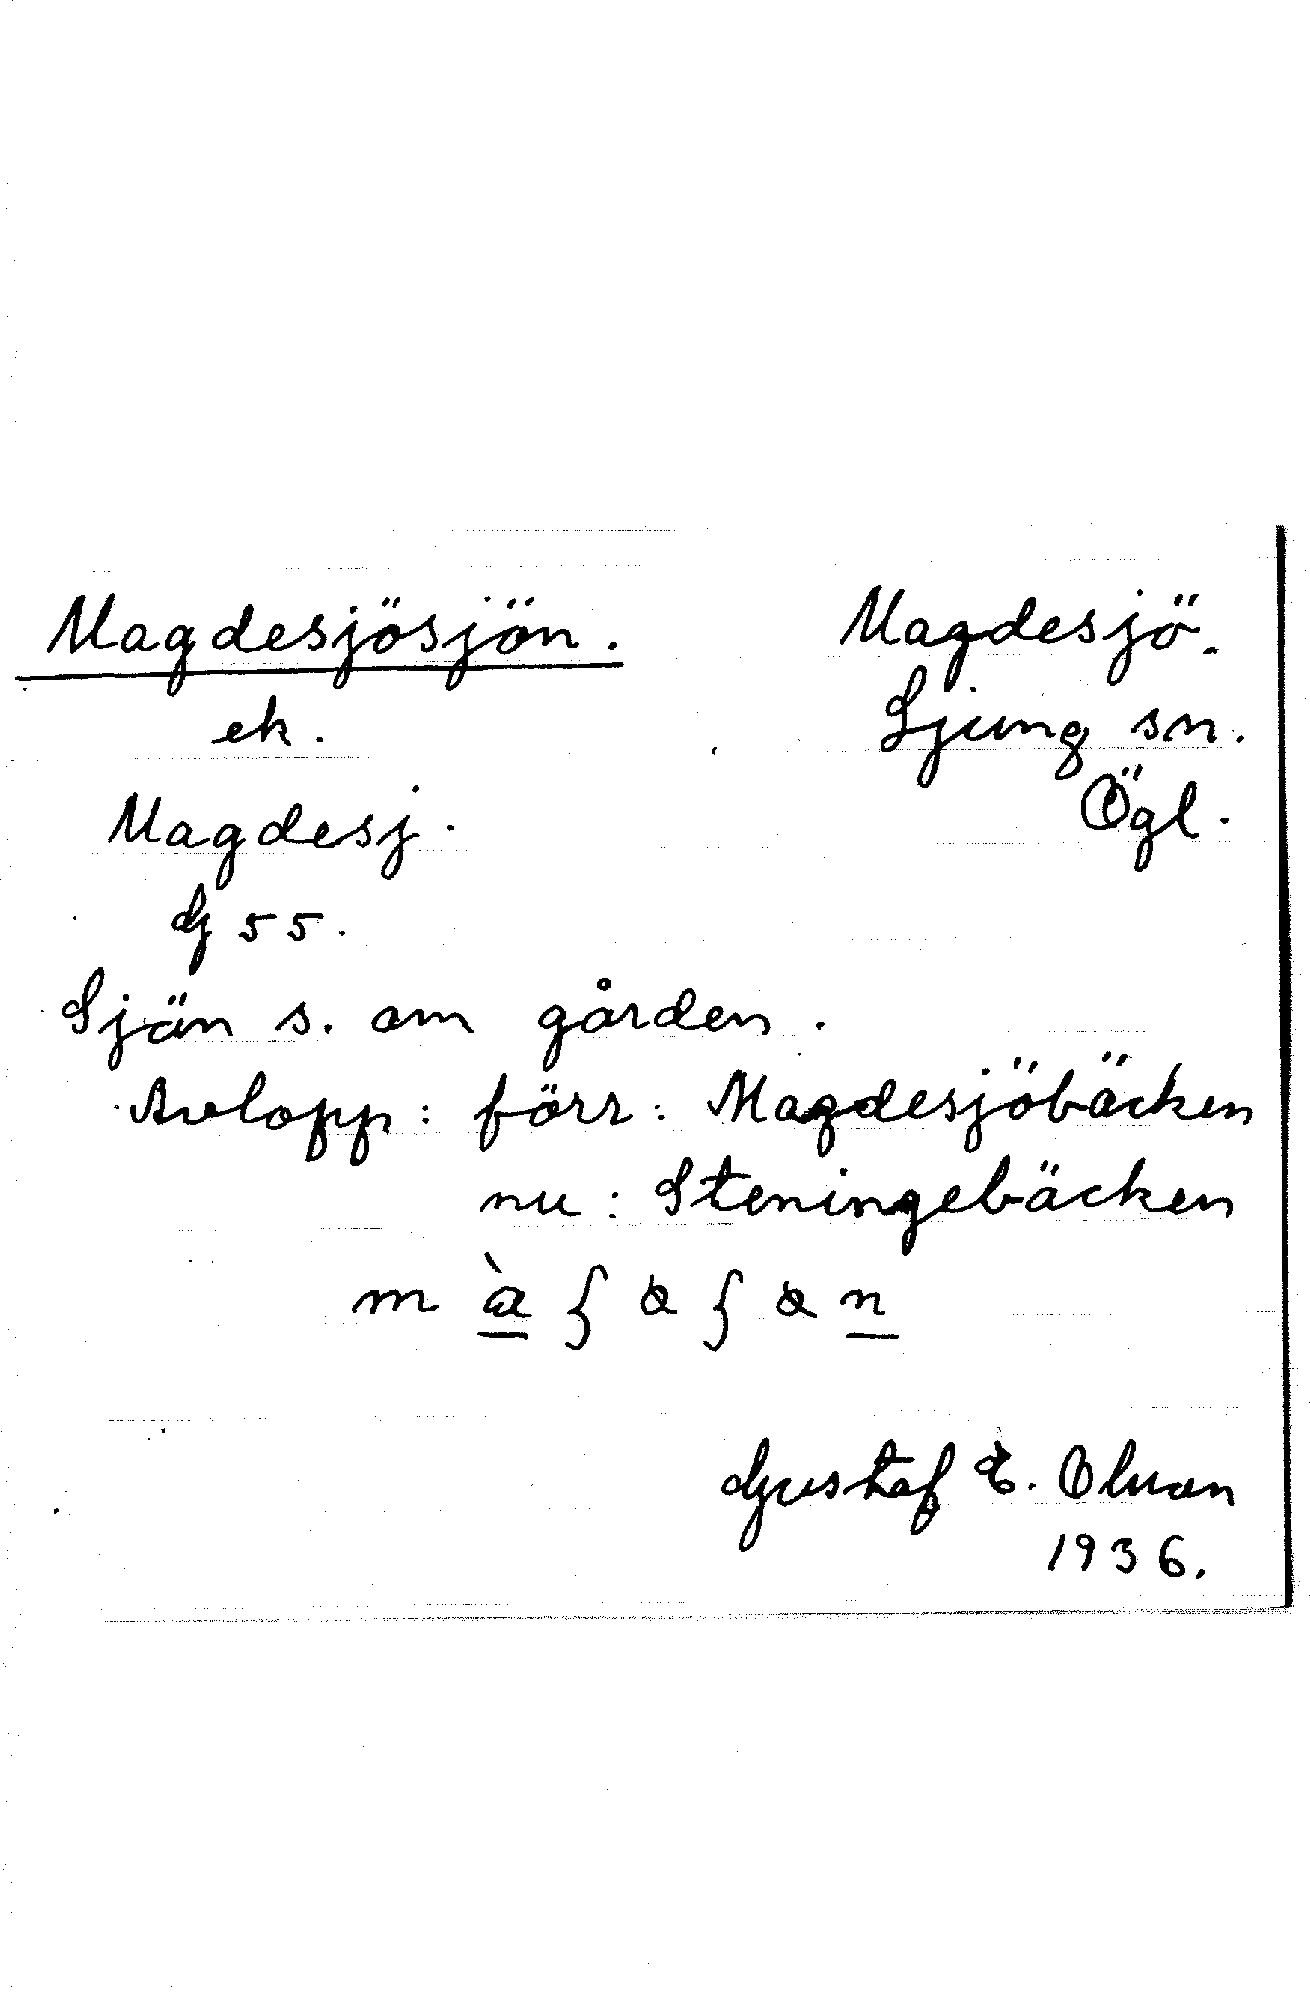 Magdesjösjön.
Magdesjö.
ek.
Ljung sn.
Ögl.
Magdesj.
G 55.
Sjön s. om gården.
Avlopp: förr: Magdesjöbäcken
nu: Steningebäcken
Gustaf E. Olsson
1936.